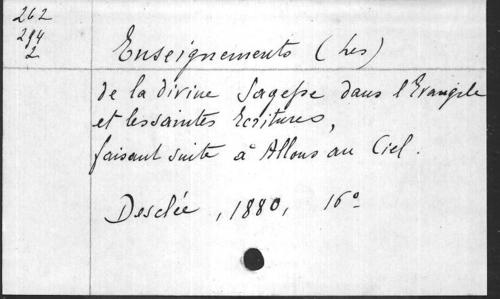 262
294
2
Enseignements (Les)
de la divine Sagesse dans l'Evangile
et les saintes Ecritures,
faisant suite à Allons au Ciel.
Desclée, 1880, 16º